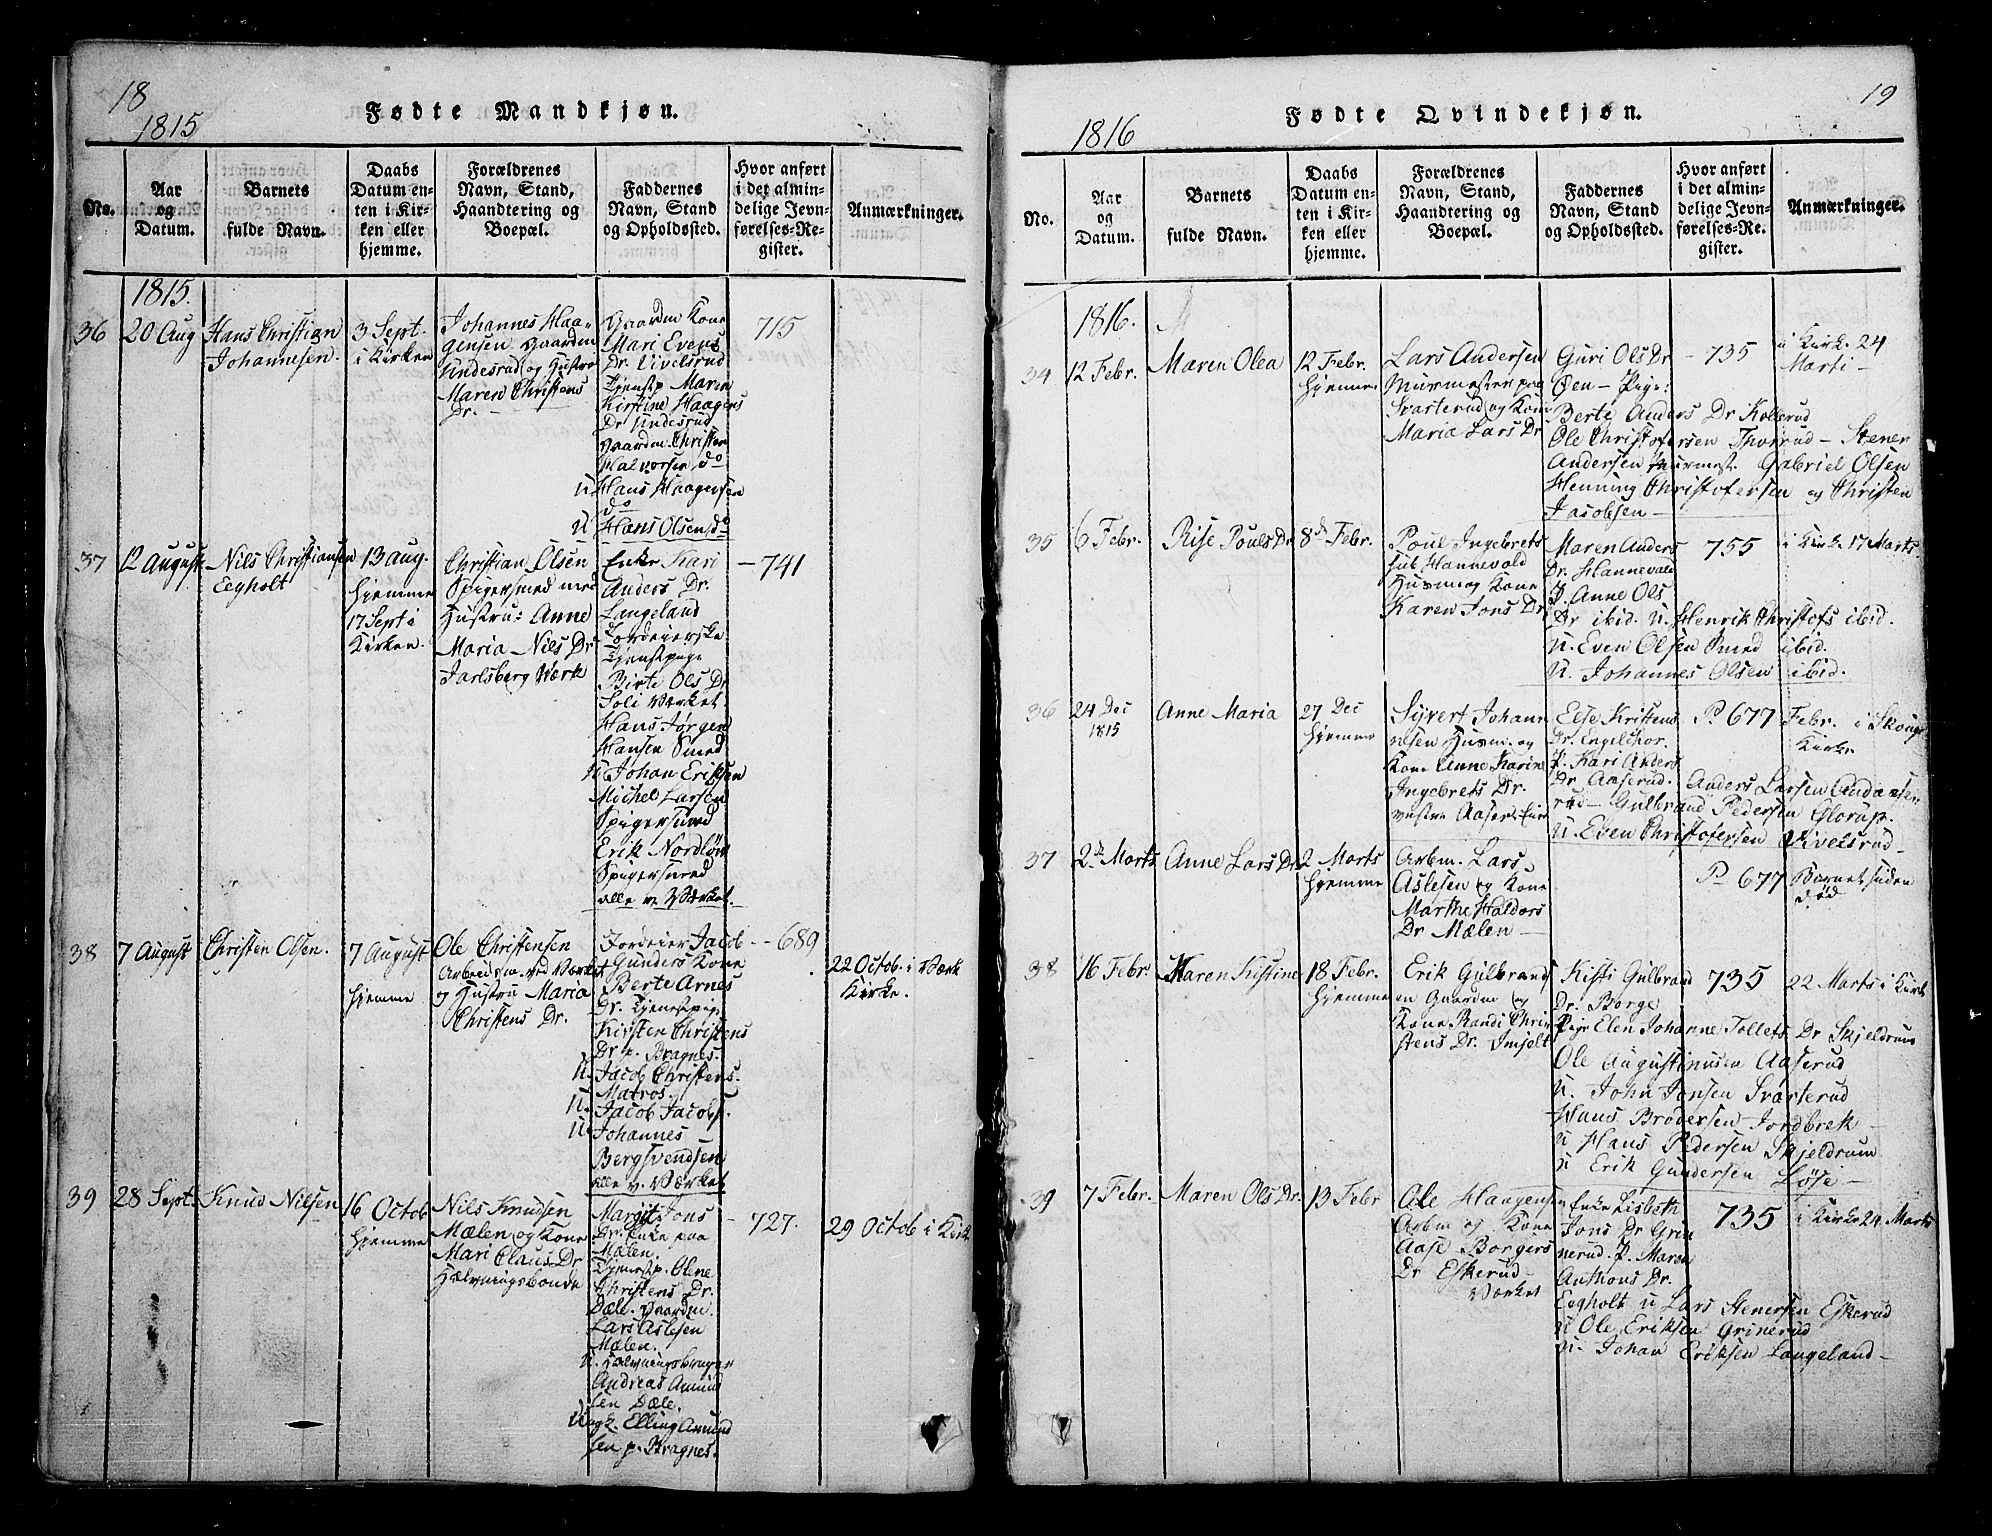 18
Fødte Mandkjøn.
1815
No.
Aar
og
Datum.
Barnets
fulde Navn.
Daabs
Datum en-
ten i Kir-
ken eller
hjemme.
Forældrenes
Navn, Stand,
Haandtering og
Boepæl.
Faddernes
Navn, Stand
og Opholdssted.
Hvor anført
i det almin-
delige Jevn-
førelses-Re-
gister.
Anmærkninger.
1815.
36
20 Aug
Hans Christian
Johannesen.
3 Sept.
i Kirken
Johannes Haa-
gensen Gaardm
Undesrud og Hustro
Maren Christens
Dr.
Gaardm Kone
Mari Evens
Dr. Vivelsrud
Tjenestp Maren
Kirstine Haagens
Dr Undesrud
Gaardm. Christen
Halvorsen do
U Hans Haagensen
do
U Hans Olsen do
715
37
12 August
Nils Christiansen
Eegholt
13 Aug.
hjemme
17 Sept i
Kirken.
Christian Olsen
Spigersmed med
Hustru: Anne
Maria Nils Dr
Jarlsberg Værk
Enke Kari
Anders Dr.
Langeland
Jordeierske
Tjenestpige
Birte Ols Dr
Soli Værket
Hans Jørgen
Hansen Smed
U Johan Eriksen
Michel Larsen
Spigersmed
Erik Nordløw
Spigersmed
alle v. Værket.
741
38
7 August
Christen Olsen.
7 August
hjemme
Ole Christensen
Arbeidsm. ved Værket
og Hustru Maria
Christens Dr.
Jordeier Jacob
Gunders Kone
Berte Arnes
Dr. Tjenestpig
Kirsten Christens
Dr p. Bragnes.
U. Jacob Christens.
Matros.
U. Jacob Jacobs.
U. Johannes
Bergsvendsen
alle v. Værket
689
22 Octob. i Værk
Kirke.
39
28 Sept.
Knud Nilsen
16 Octob
hjemme
Nils Knudsen
Mælen og Kone
Mari Claus Dr
Hælvningsbonde
Margit Jons
Dr. Enke paa
Mælen.
Tjenestp. Olne
Christens Dr.
Dæle. Gaardm.
Lars Aslesen
Mælen.
U. Halvningsbruger
Andreas Amund
sen Dæle.
Ungk. Elling Amund
sen p. Bragnes.
727.
29 Octob i Kirk
19
Fødte Qvindekjøn.
1816
No.
Aar
og
Datum.
Barnets
fulde Navn.
Daabs
Datum en-
ten i Kir-
ken eller
hjemme.
Forældrenes
Navn, Stand,
Haandtering og
Boepæl.
Faddernes
Navn, Stand
og Opholdssted.
Hvor anført
i det almin-
delige Jevn-
førelses-Re-
gister.
Anmærkninger.
1816.
34
12 Febr.
Maren Olea
12 Febr.
hjemme
Lars Andersen
Murmester paa
Svarterud og Kone
Maria Lars Dr
Guri Ols Dr
Øen - Pige:
Berte Anders Dr Kolbrud
Ole Christofersen Thorrud - Stener
Andersen Murmest. Gabriel Olsen
Henning Christofersen og Christen
Jacobsen -
735
i Kirk. 24
Marti -
35
6 Febr.
Rise Pouls Dr
8de Febr.
Poul Ingebrets
sen Hannevald
Husm og Kone
Karen Jons Dr
Maren Anders
Dr. Hannevald
P. Anne Ols
Dr ibid. U. Henrik Christofs ibid.
U. Even Olsen Smed ibid.
U. Johannes Olsen ibid.
755
i Kirk. 17 Marts
36
24 Dec
1815
Anne Maria
27 Dec
hjemme
Syvert Johan
nesen Husm. og
Kone Anne Karine
Ingebrets Dr.
vestre Aaserud Eie
Else Kristens
Dr. Engelthor.
P. Kari Anders
Dr Aaserud. Anders Larsen
rud - Gulbrand Pedersen Glorup.
U. Even Christofersen Vivelsrud -
P. 677
Febr. i Skougr
Kirke
37
2de Marts
Anne Lars Dr
2 Marts
hjemme
Arbm. Lars
Aslesen og Kone
Marthe Haldors
Dr Mælen -
P. 677
Barnet siden
død
38
16 Febr.
Maren Kistine
18 Febr.
hjemme
Erik Gulbrands
en Gaardm og
Kone Randi Chri
stens Dr. Imselt
Kisti Gulbrand
Dr. Borge
Pige Elen Johanne Tollefs Dr Skjeldrum
Ole Augustinusen Aaserud
U. John Jonsen Svarterud
Hans Brødersen Jordbrek -
U Hans Pedersen Skjeldrum
U Erik Gundersen Løse -
735
22 Marts i Kirk
39
7 Febr.
Maren Ols Dr.
13 Febr
Ole Haagensen
Arbm og Kone
Aase Borgers
Dr Eskerud -
Værket
Enke Lisbeth
Jons Dr Gri
nerud. P. Maren
Anthons Dr.
Eegholt U Lars Stenersen Eskerud
U Ole Eriksen Grinerud
U. Johan Eriksen Langeland -
735
i Kirke 24. Marts